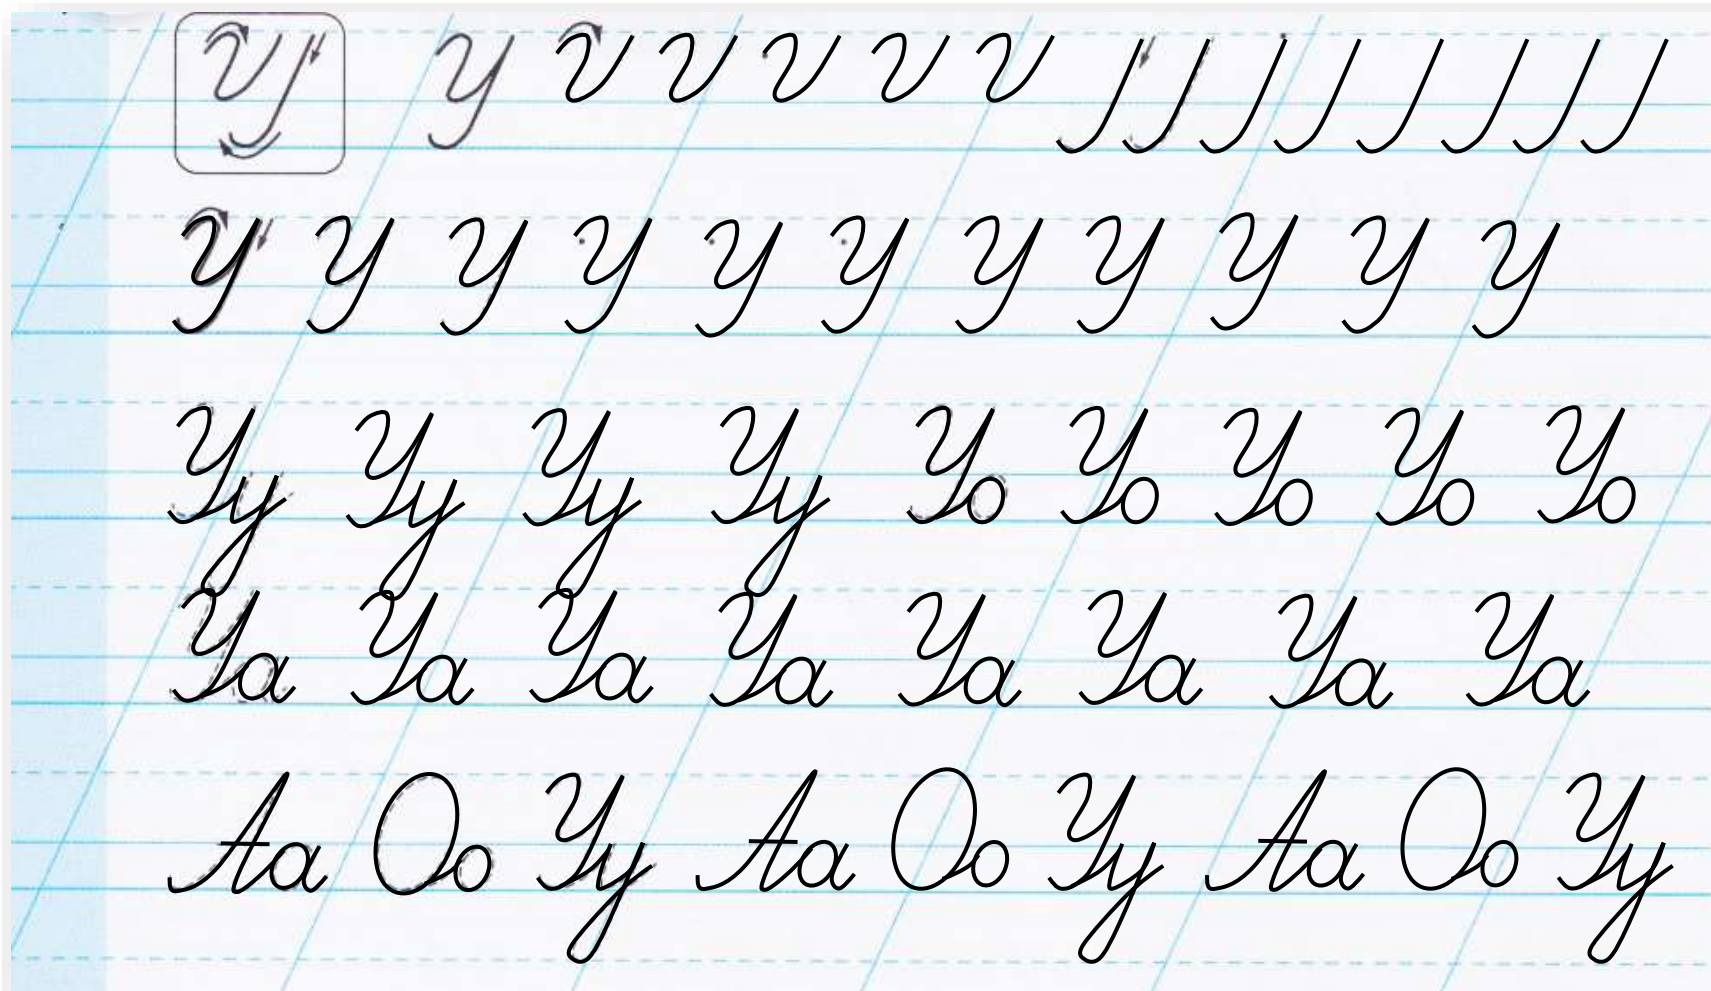 У
У У У У У У У У У У У
Уу Уу Уу Уу Уо Уо Уо Уо Уо
Уа Уа Уа Уа Уа Уа Уа Уа
Аа Оо Уу Аа Оо Уу Аа Оо Уу